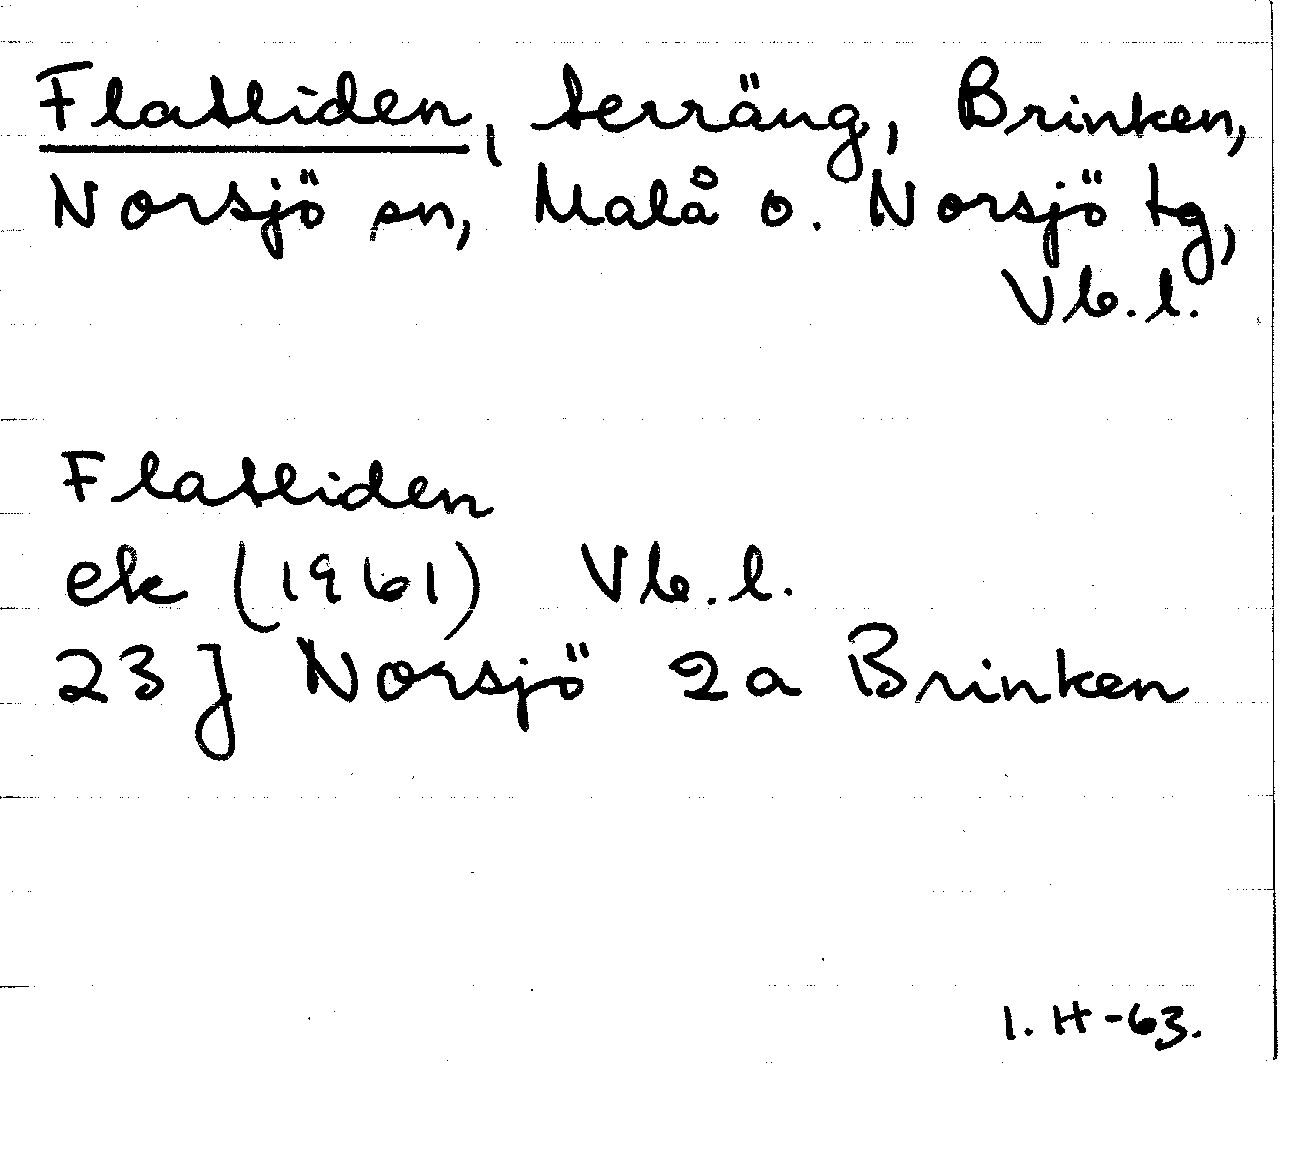 Flatliden, terräng, Brinken,
Norsjö sn, Malå o. Norsjö tg,
Vb.l.
Flatliden
ek (1961) Vb.l.
23 J Norsjö 2a Brinken
I. H-63.